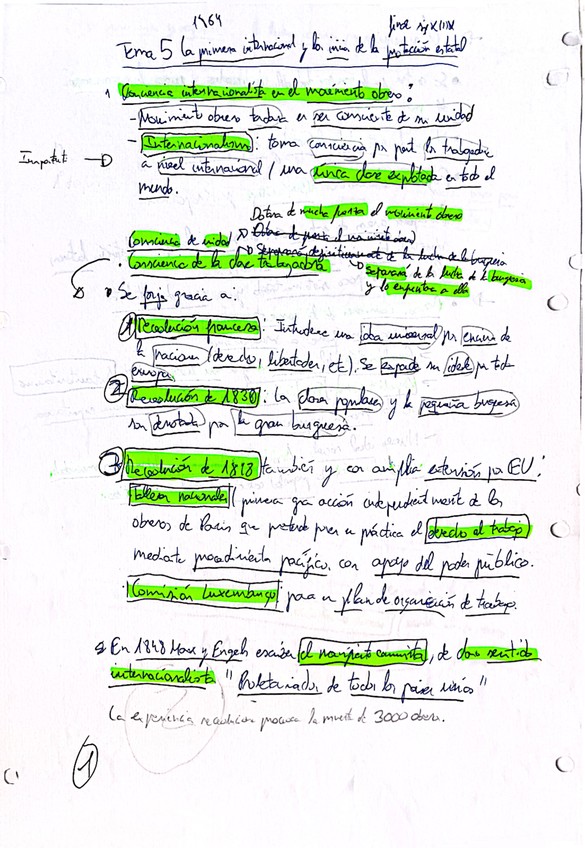 1964 final s XVIII XIX
Tema 5 La primera internacional y los inicios de la protección estatal
1 Conciencia internacionalista en el movimiento obrero:
- Movimiento obrero tardara en ser consciente de su unidad
- Internacionalismo: toma consciencia por part la trabajadora
Important a nivel internacional / una única clase explotada en todo el
mundo.
Dotara de mucha fuerza el movimiento obrero
Consciencia de unidad
Consciencia de la clase trabajadora
Separara de la lucha de la burgesia
y lo enfrentara a ella
• Se forja gracia a:
1 Revolución francesa: Introduce una idea universal por encima de
la nacional (derecho, libertades, etc). Se expande su idea por toda
europa
2 Revolución de 1830: La clase popular y la pequeña burgesa
son derrotada por la gran burguesa.
3 Revolución de 1848 también y con amplia extensión por EU:
Talleres nacionales / primera gra acción independientment de los
obreros de Paris que pretende poner en práctica el derecho al trabajo
mediante procedimiento pacífico, con apoyo del poder público.
Comisión Luxemburgo para un plan de organización de trabajo.
En 1848 Marx y Engels escriben el manifiesto comunista, de claro sentido
internacionalista "Proletariados de todos los paises uniros"
La experiencia revolucion provoca la muerte d 3000 obreros.
1